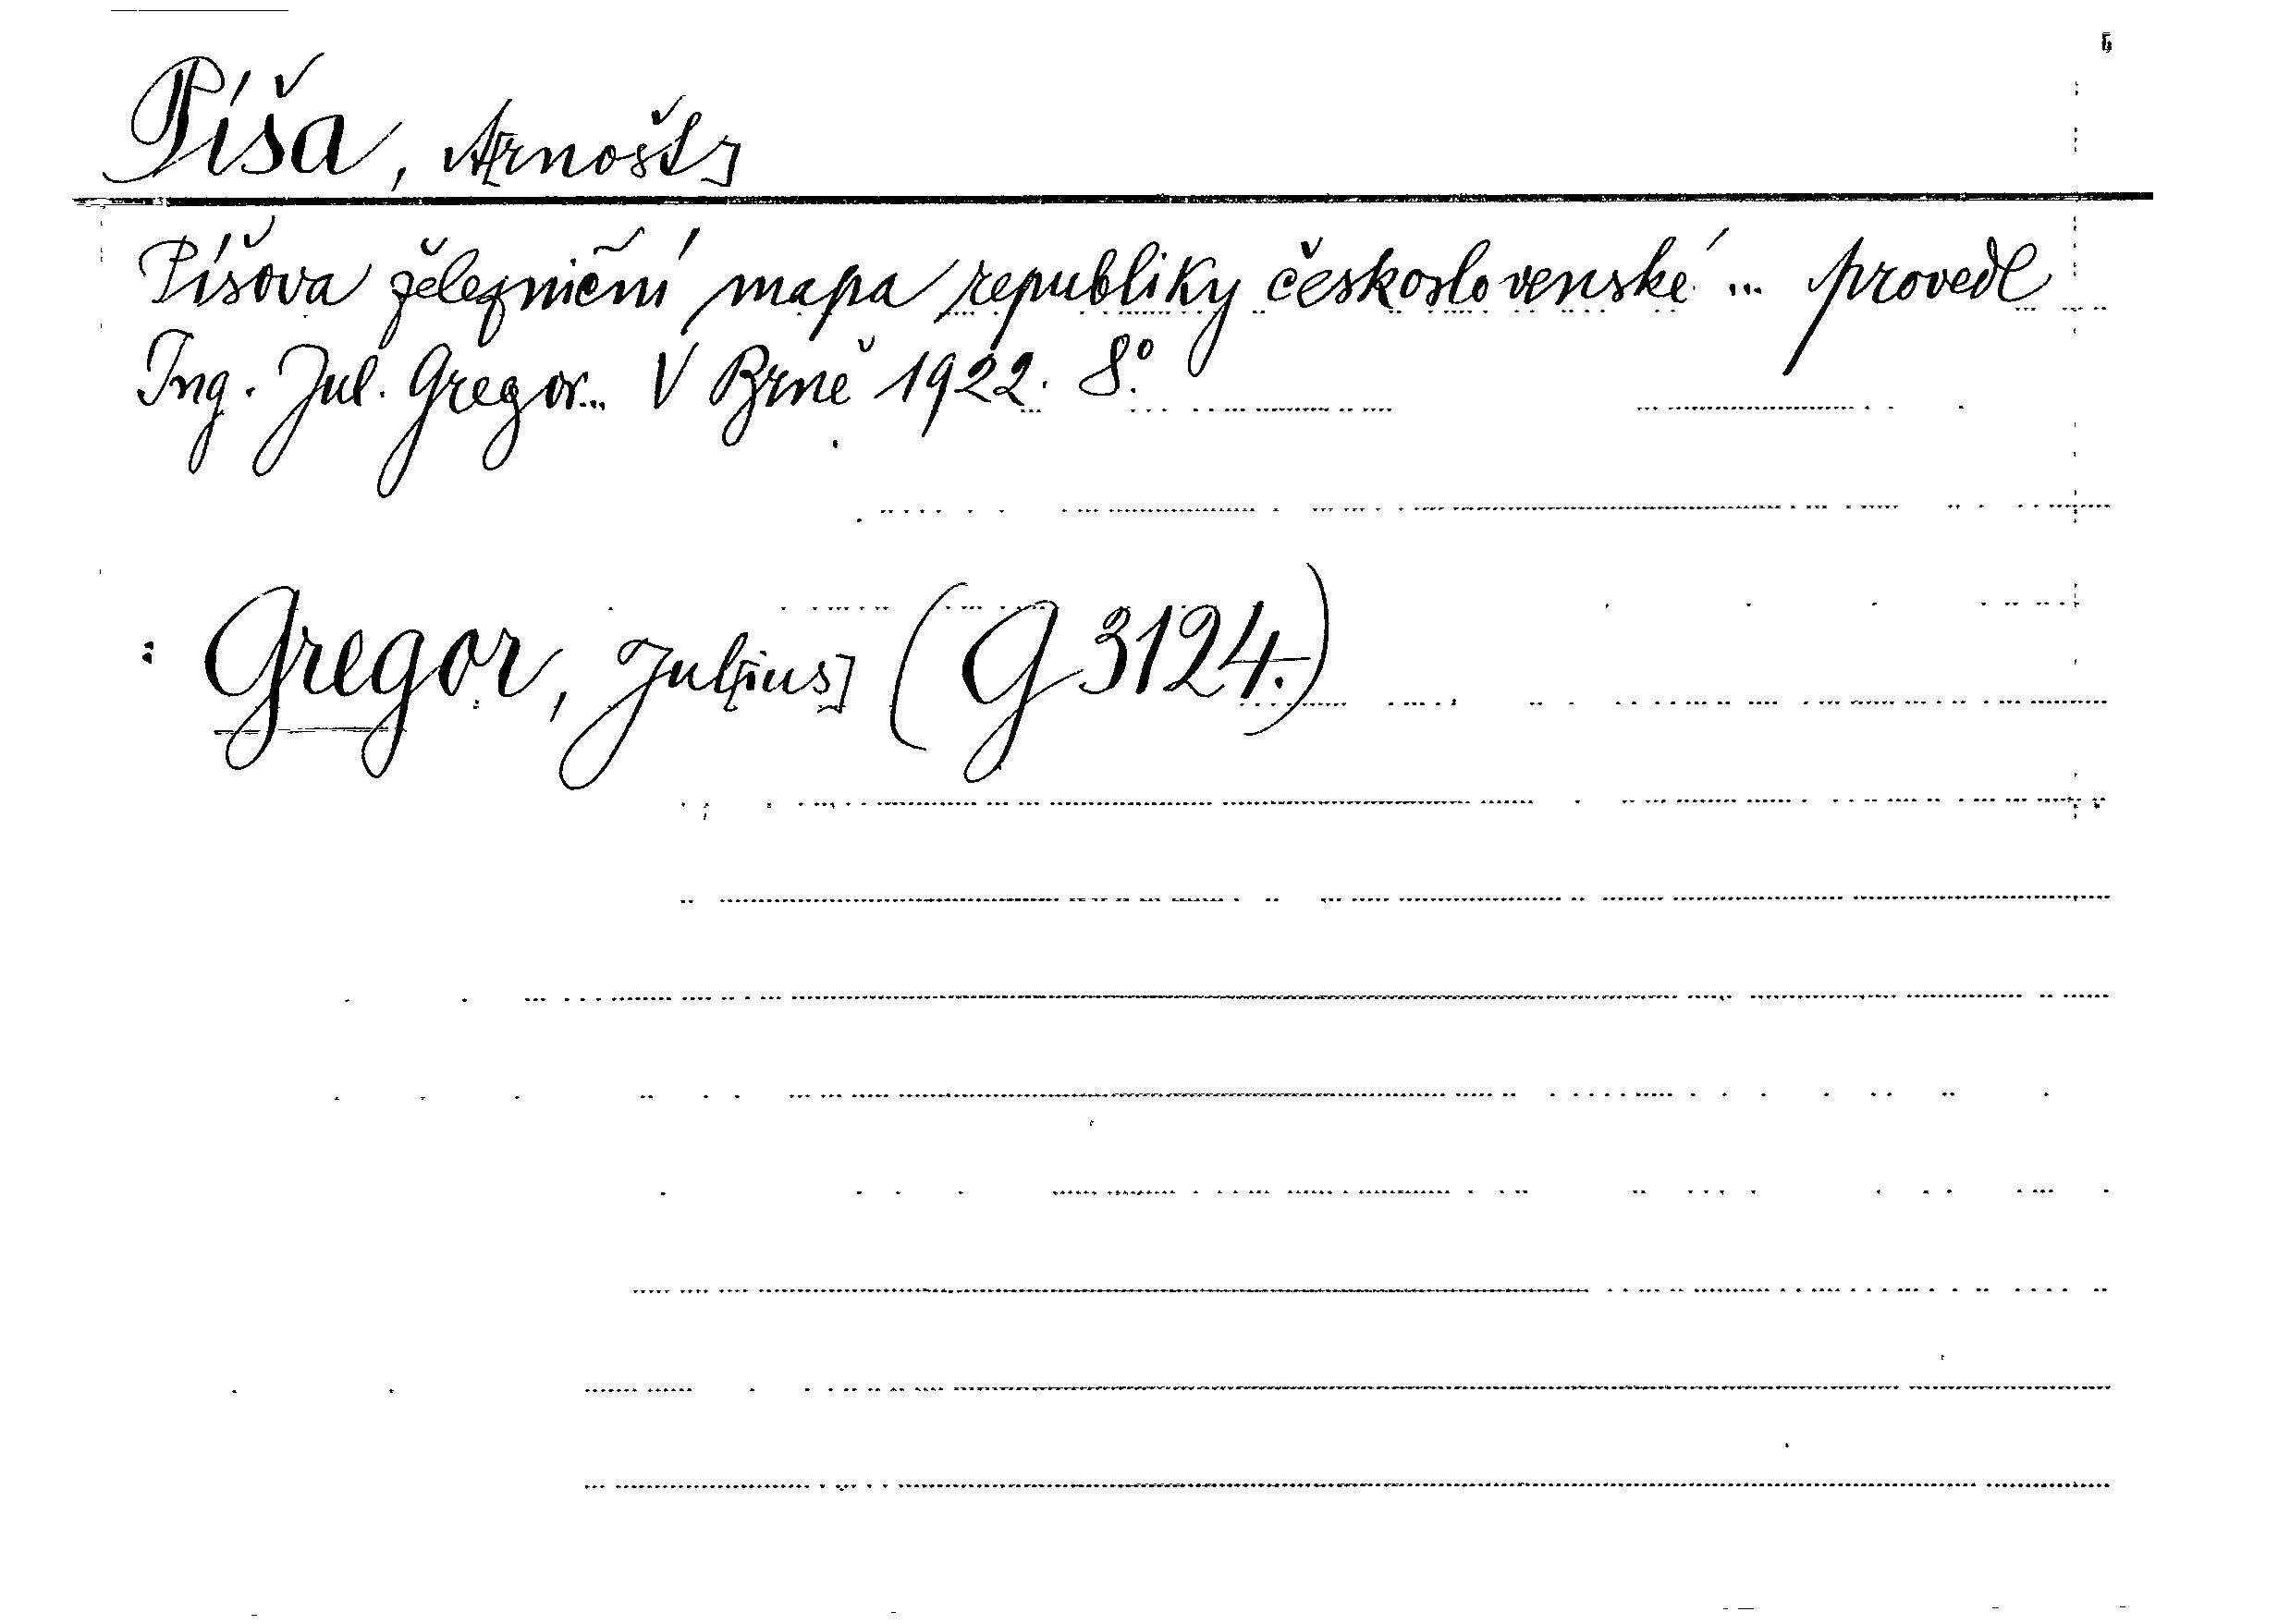 Píša, A[rnošt]
Píšova železniční mapa republiky československé ... provedl
Ing. Jul. Gregor... V Brně 1922. 8°.
: Gregor, Jul[ius] (G 3124.)